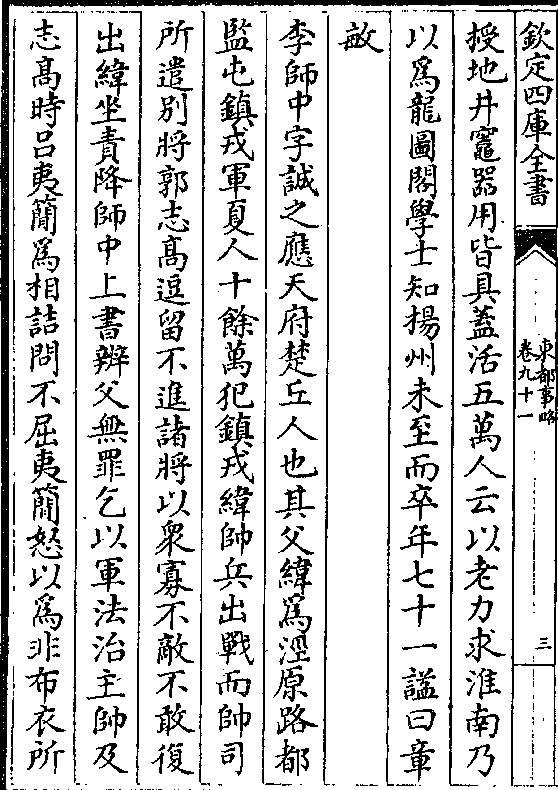 欽定四庫全書
東都事略
卷九十一
三
授地井竈器用皆具蓋活五萬人云以老力求淮南乃
以為龍圖閣學士知揚州未至而卒年七十一謚曰章
敏
李師中字誠之應天府楚丘人也其父緯為涇原路都
監屯鎮戎軍夏人十餘萬犯鎮戎緯帥兵出戰而帥司
所遣別將郭志髙逗留不進諸將以衆寡不敵不敢復
出緯坐責降師中上書辨父無罪乞以軍法治主帥及
志髙時呂夷簡為相詰問不屈夷簡怒以為非布衣所